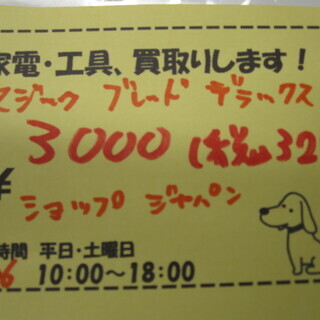 家電・工具、買取りします!
マジック ブレード デラックス
3000 (税込32
¥
ショップ ジャパン
時間 平日・土曜日
10:00~18:00